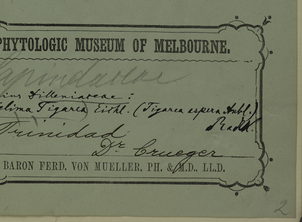 PHYTOLOGIC MUSEUM OF MELBOURNE.
Dilleniaceae:
Tigarea (Tigarea aspera Aubl.)
Trinidad
Dr Crueger
BARON FERD. VON MUELLER, PH. & M.D., LL.D.
2